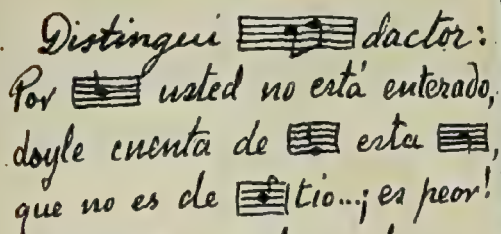 Distingui dactor:
Por usted no está enterado,
doyle cuenta de esta ,
que no es de tio...; es peor!